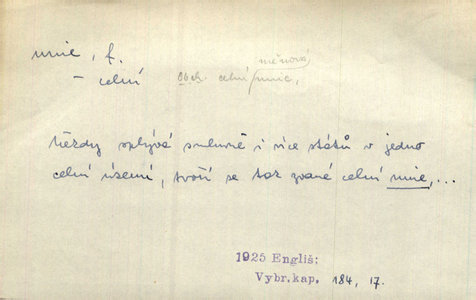 unie, f.
měnová
– celní obch. celní unie,
Někdy splývá smluvně i více států v jedno
celní území, tvoří se tak zvané celní unie,...
1925 Engliš:
Vybr.kap. 184, 17.